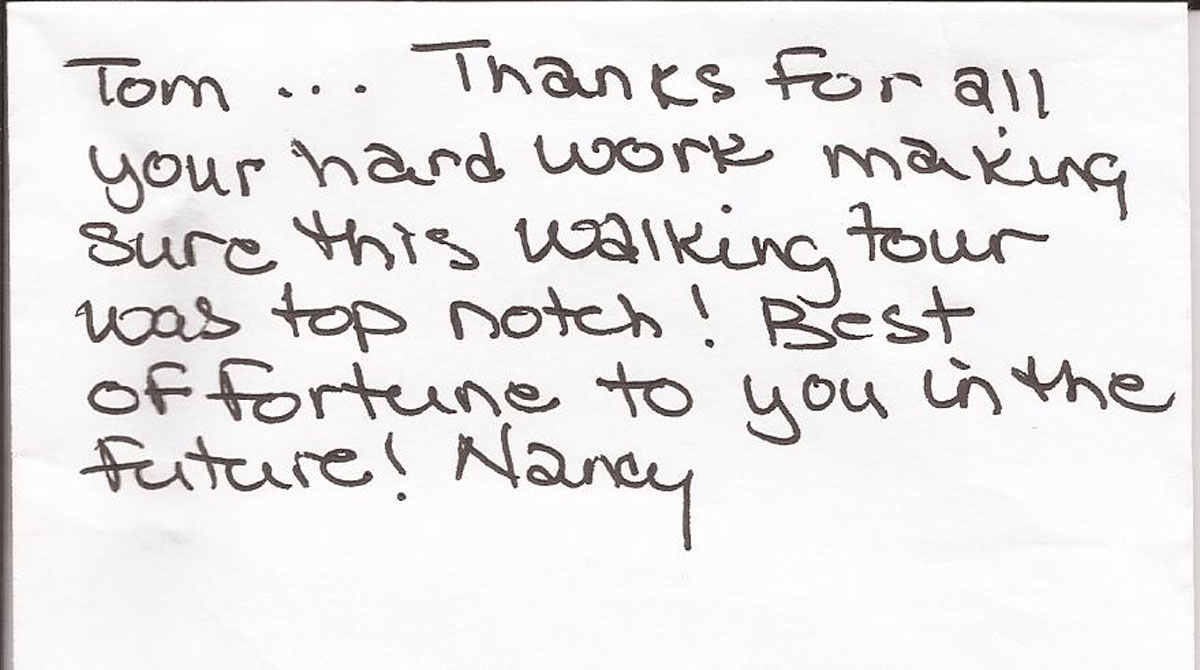 Tom ... Thanks for all
your hard work making
sure this walking tour
was top notch! Best
of fortune to you in the
future! Nancy